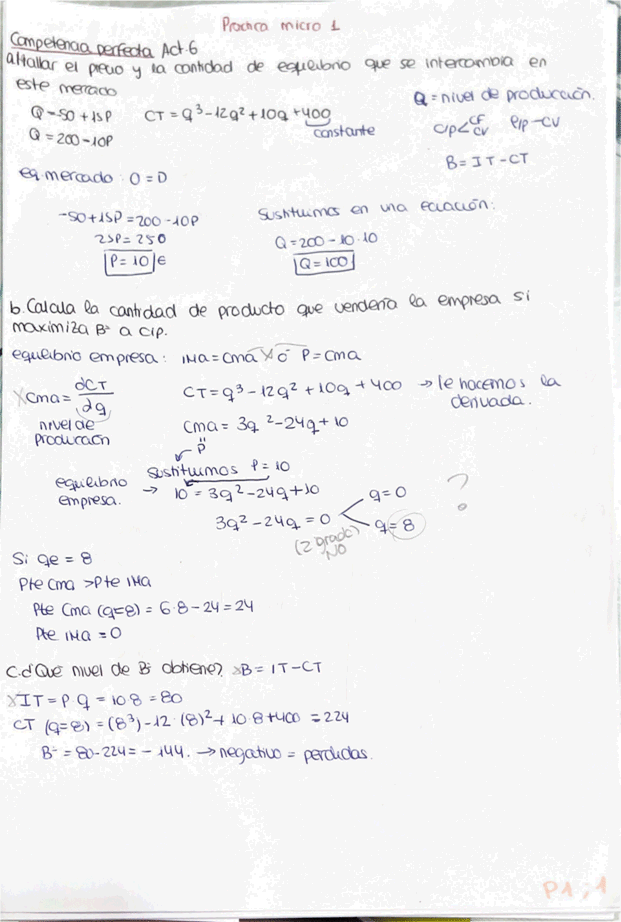 Práctica micro 1
Competencia perfecta Act.6
a) Hallar el precio y la cantidad de equilibrio que se intercambia en
este mercado
Q=-50+15P CT=q³-12q²+10q+400
constante
Q=200-10P
Q=nivel de producción.
B=IT-CT
eq.mercado: O=D
-50+15P=200-10P
25P=250
P=10 €
Sustituimos en una ecuación:
Q=200-10·10
Q=100
b. Calcula la cantidad de producto que vendería la empresa si
maximiza Bº a C/P.
equilibrio empresa: IMa=Cma ó P=Cma
Cma=dCT/dq
nivel de
producción
CT=q³-12q²+10q+400 → le hacemos la
derivada.
Cma=3q²-24q+10
P
Sustituimos P=10
equilibrio
empresa. → 10=3q²-24q+10
3q²-24q=0
q=0
q=8
(2 grado)
NO
?
Si qe=8
Pte Cma >Pte IMa
Pte Cma (q=8)=6·8-24=24
Pte IMa=0
c.¿Qué nivel de Bº obtiene? B=IT-CT
IT=P.q=10·8=80
CT (q=8)=(8³)-12·(8)²+10·8+400=224
Bº=80-224=-144. →negativo=perdidas.
P1;1